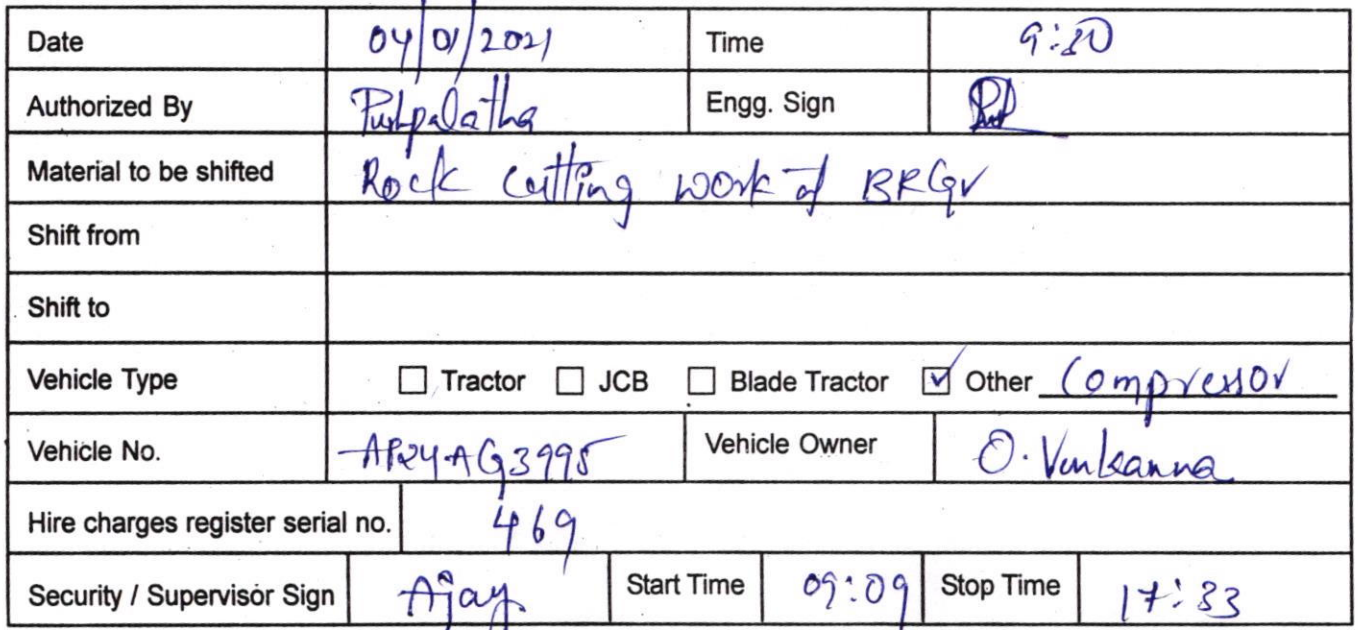 Date 04/01/2021 Time 9:30
Authorized By Pushpalatha Engg. Sign
Material to be shifted Rock cutting work of BRGV
Shift from
Shift to
Vehicle Type Tractor JCB Blade Tractor Other Compressor
Vehicle No. AP24AG3995 Vehicle Owner O. Venkanna
Hire charges register serial no. 469
Security / Supervisor Sign Ajay Start Time 09:09 Stop Time 17:33